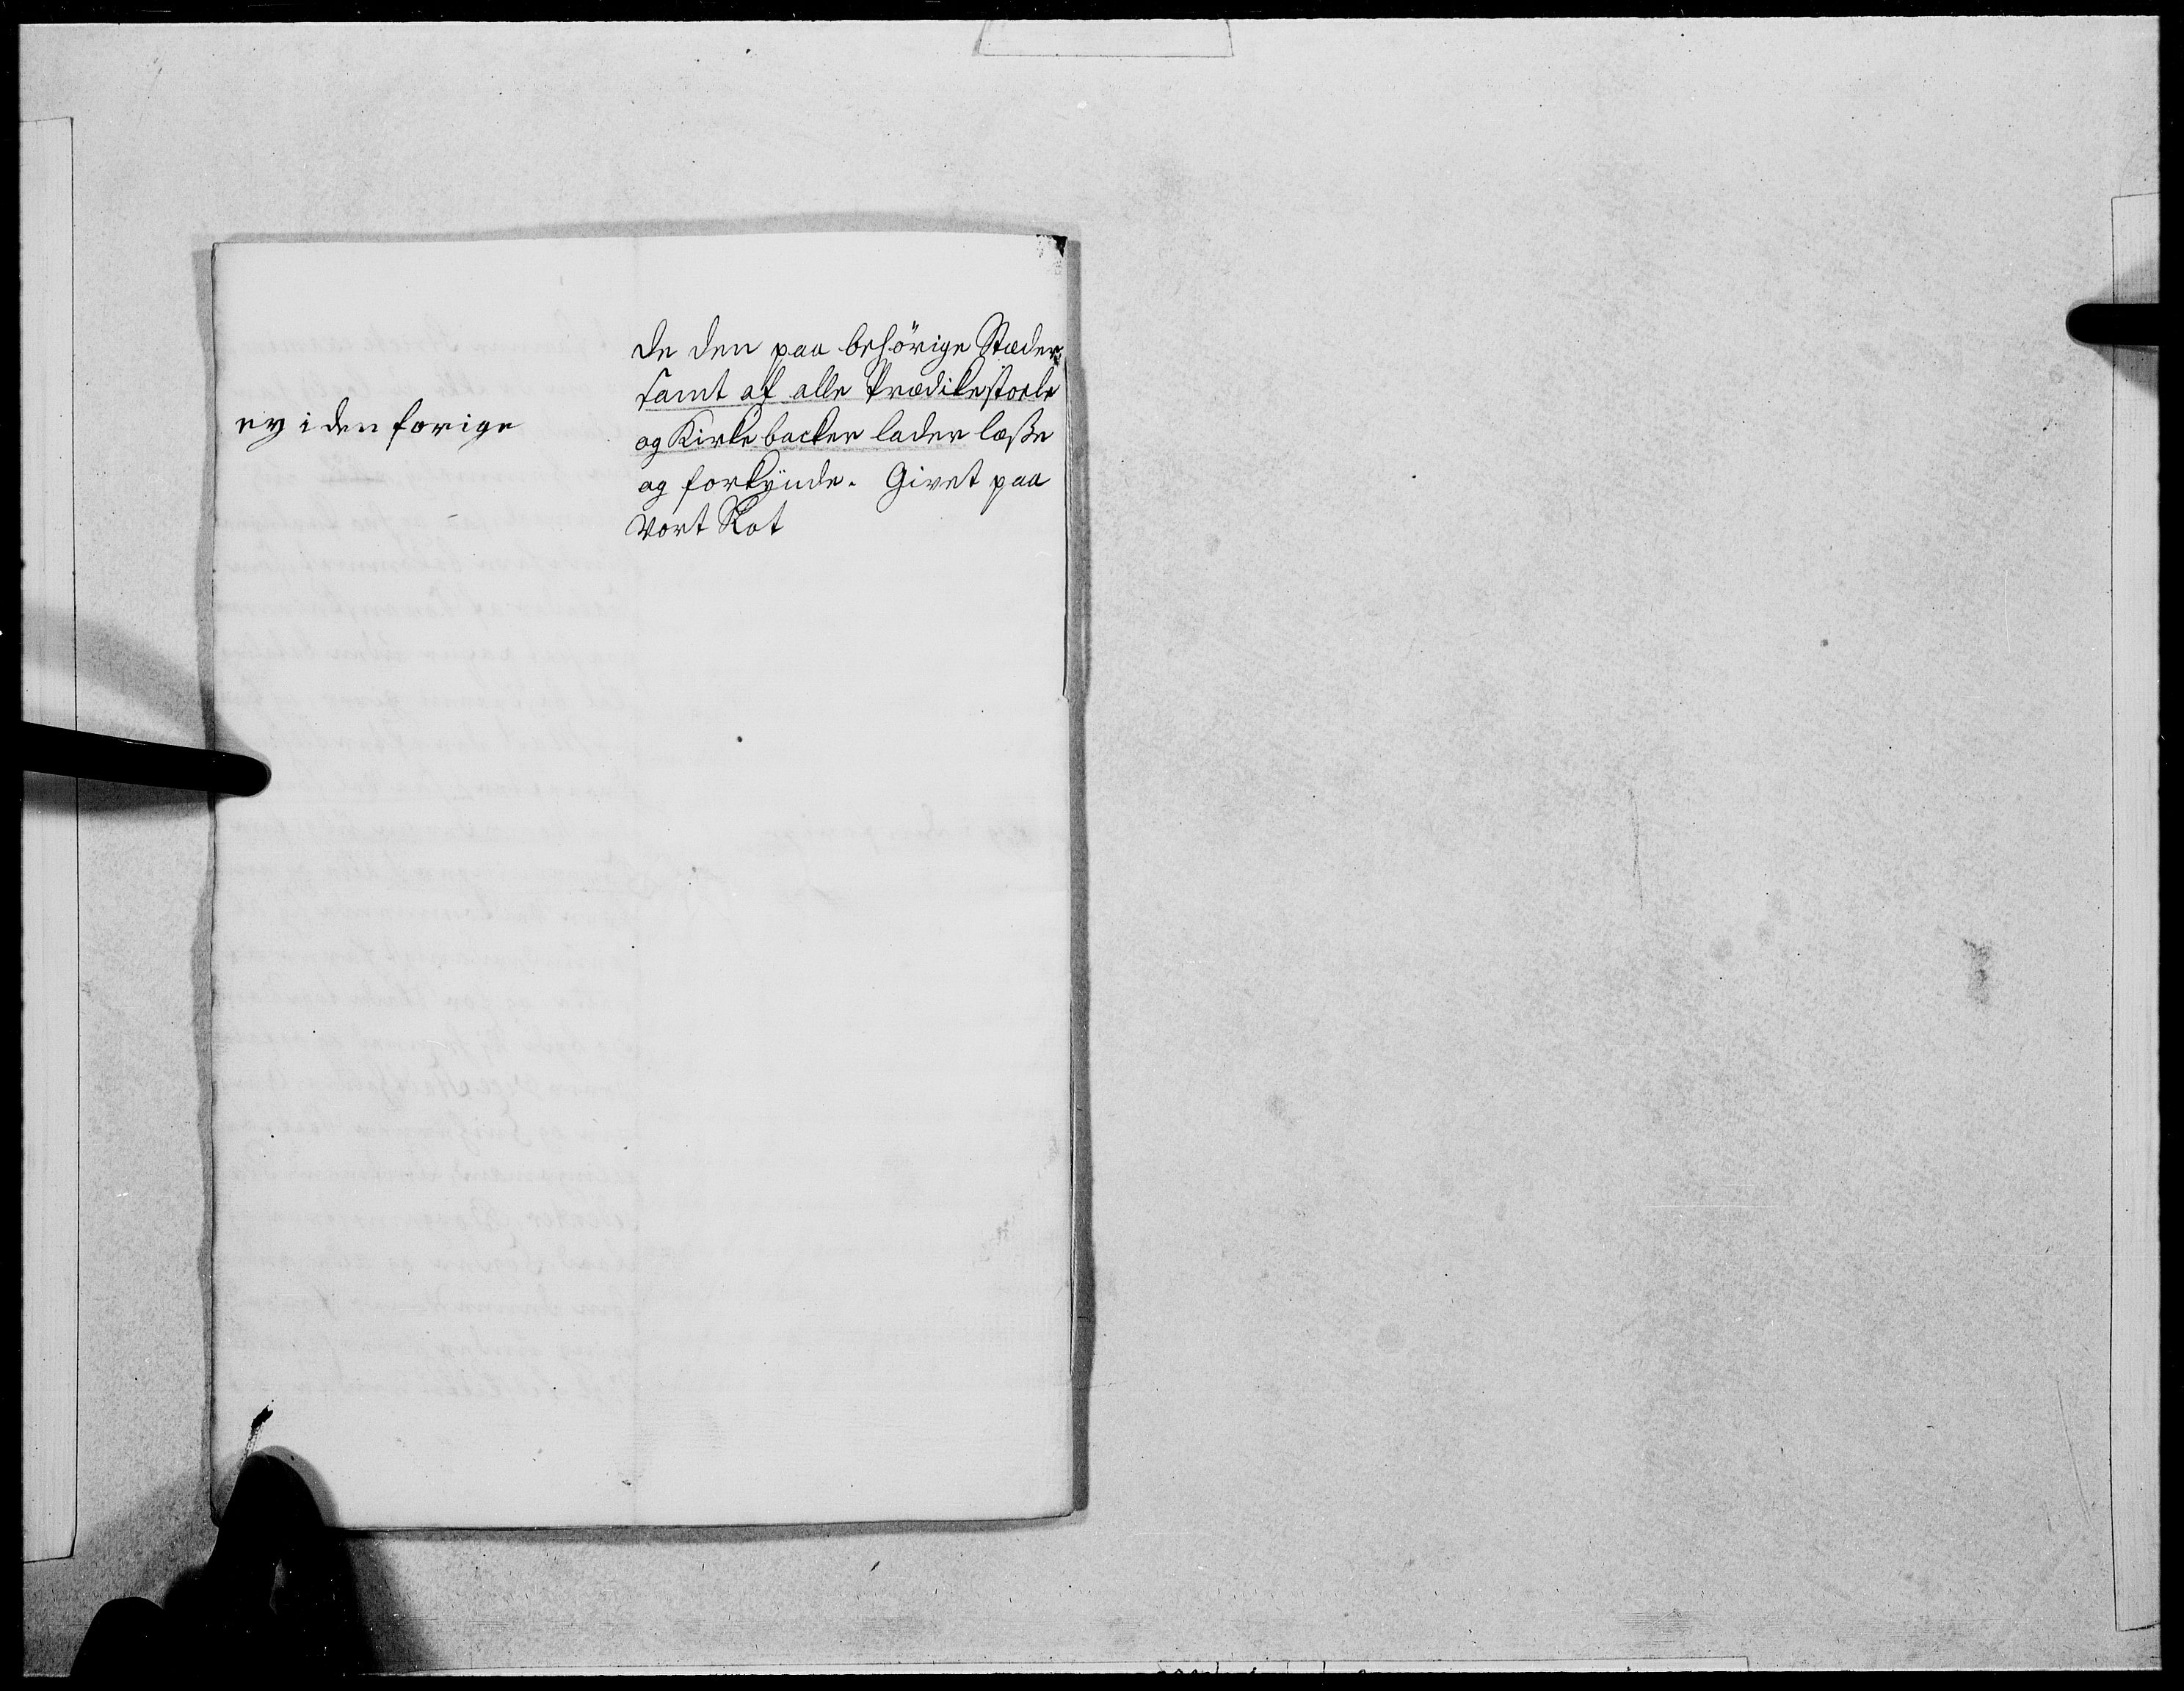 ey i den forige
de den paa behörige Stæder,
samt af alle Prædikestoele
og Kirkebacker lader læsse
og forkÿnde. Givet paa
Vort Slot